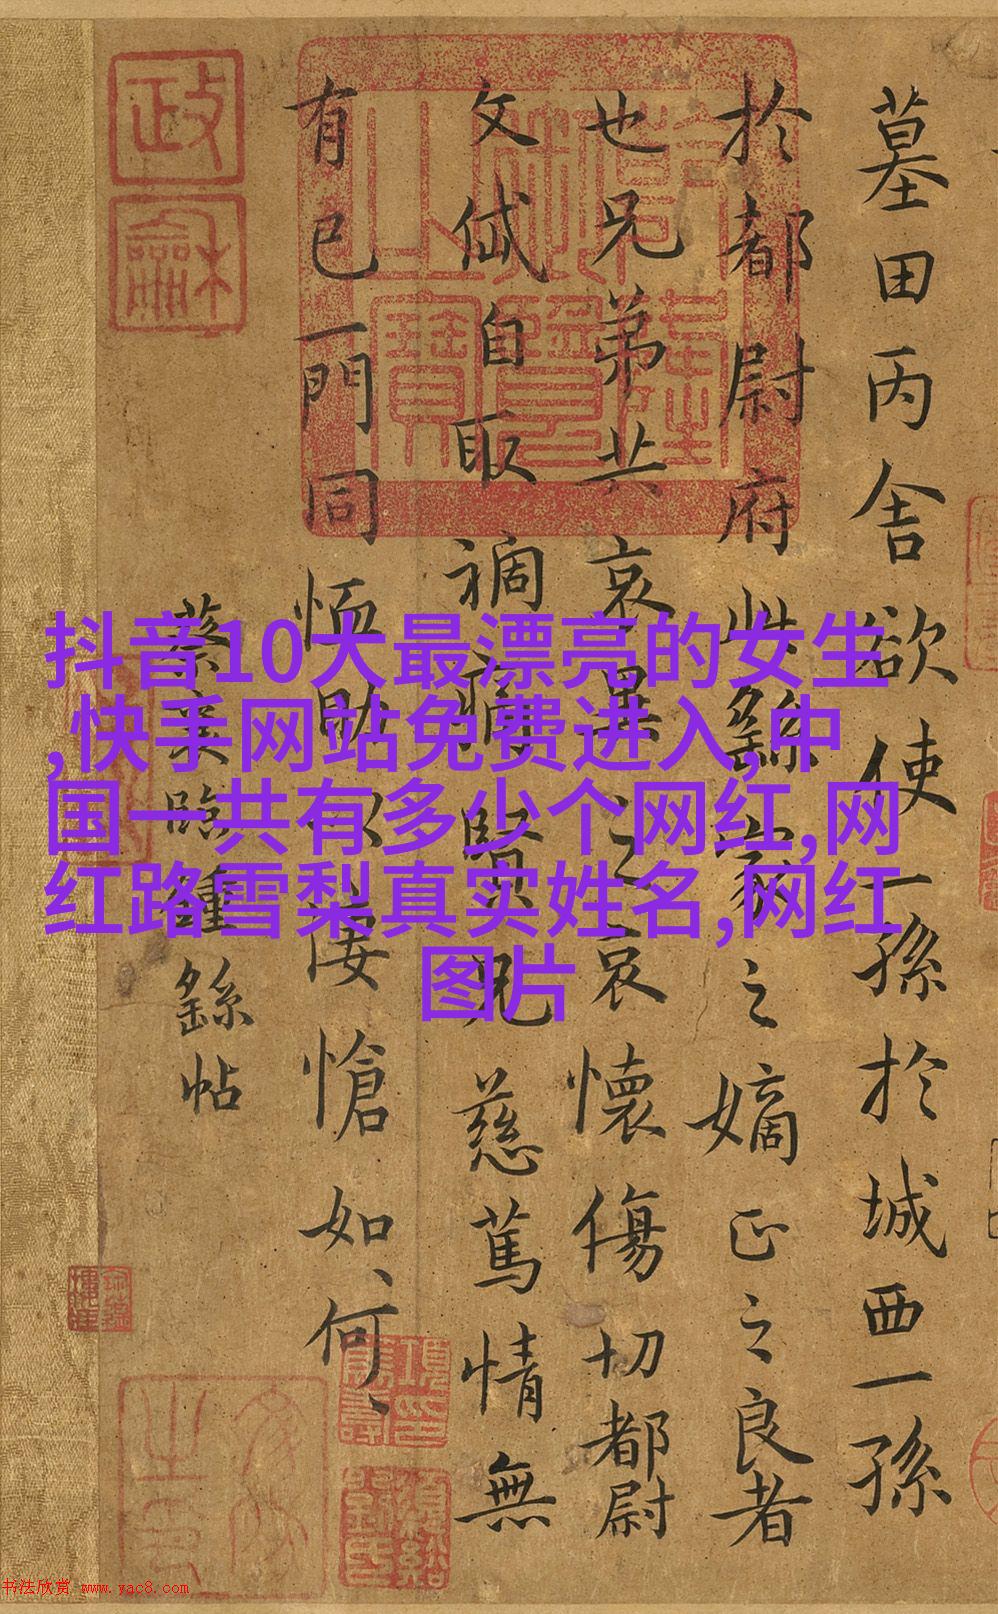 抖音10大最漂亮的女生
,快手网站免费进入,中
国一共有多少个网红,网
红路雪梨真实姓名,网红
图片
墓田丙舍欲使一孫於城西一孫
於都尉府此繇家之嫡正之良者
也兄弟共哀異之哀懷傷切都尉
文自取禍痛賢兄慈篤情無
有已一門同恤助以悽愴如何、
蔡襄臨鍾繇帖
政龢
书法欣赏 www.yac8.com